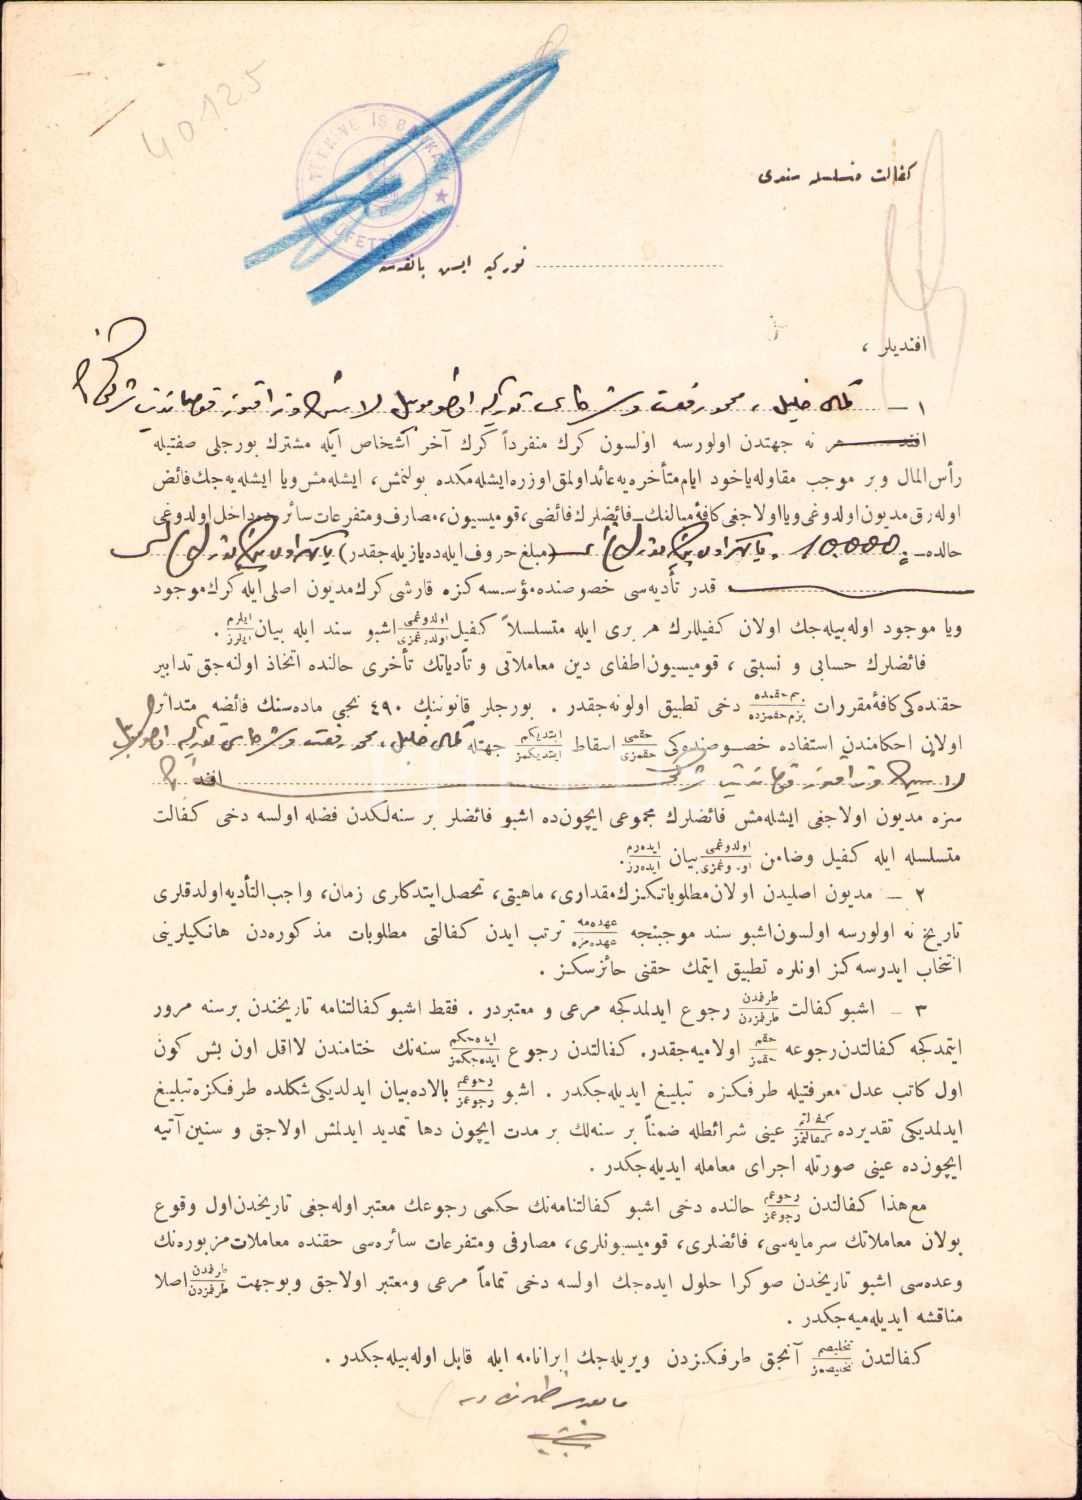 40125
TÜRKİYE İŞ BANKASI
كفالت متسلسله سندی
توركیه ایش بانقه‌سنه
افندیلر ،
١ ـ كمال خلیل ، محمد رفعت و شركاسی
هر نه جهتدن اولورسه اولسون كرك منفرداً كرك آخر اشخاص ایله مشترك بورجلی صفتیله
رأس المال و بر موجب مقاوله یاخود ایام متأخره‌یه عائد اولمق اوزره ایشله‌مكده بولنمش ، ایشله‌مش ویا ایشله‌یه‌جك فائض
اوله‌رق مدیون اولدوغی ویا اولاجغی كافهٔ مبالغك ـ فائضلرك فائضی ، قومیسیون ، مصارف و متفرعات سائره‌ده داخل اولدوغی
حالده ـ 10.000 یالكز اون بیك (مبلغ حروف ایله‌ده یازیله‌جقدر) یالكز اون بیك
قدر تأدیه‌سی خصوصنده مؤسسه‌كزه قارشی كرك مدیون اصلی ایله كرك موجود
ویا موجود اوله‌بیله‌جك اولان كفیللرك هر بری ایله متسلسلاً كفیل اولدوغمی اولدوغمزی اشبو سند ایله بیان ایلرم ایلرز .
فائضلرك حسابی و نسبتی ، قومیسیون اطفای دین معاملاتی و تأدیاتك تأخری حالنده اتخاذ اولنه‌جق تدابیر
حقنده‌كی كافهٔ مقررات بنم حقمده بزم حقمزده دخی تطبیق اولونه‌جقدر . بورجلر قانوننك ٤٩٠ نجی ماده‌سنك فائضه متدائر
اولان احكامندن استفاده خصوصنده‌كی حقمی حقمزی اسقاط ایتدیكم ایتدیكمز جهتله كمال خلیل ، محمد رفعت و شركاسی
سزه مدیون اولاجغی ایشله‌مش فائضلرك مجموعی ایچون‌ده اشبو فائضلر بر سنه‌لكدن فضله اولسه دخی كفالت
متسلسله ایله كفیل و ضامن اولدوغمی اولدوغمزی بیان ایده‌رم ایده‌رز .
٢ ـ مدیون اصلیدن اولان مطلوباتكزك مقداری ، ماهیتی ، تحصل ایتدكلری زمان ، واجب التأدیه اولدقلری
تاریخ نه اولورسه اولسون اشبو سند موجبنجه عهده‌مه عهده‌مزه ترتب ایدن كفالتی مطلوبات مذكوره‌دن هانكیلرینی
انتخاب ایدرسه‌كز اونلره تطبیق ایتمك حقنی حائزسكز .
٣ ـ اشبو كفالت طرفمدن طرفمزدن رجوع ایدلمدكجه مرعی و معتبردر . فقط اشبو كفالتنامه تاریخندن بر سنه مرور
ایتمدكجه كفالتدن رجوعه حقم حقمز اولامیه‌جقدر . كفالتدن رجوع ایده‌جكم ایده‌جكمز سنه‌نك ختامندن لااقل اون بش كون
اول كاتب عدل معرفتیله طرفكزه تبلیغ ایدیله‌جكدر . اشبو رجوعم رجوعمز بالاده بیان ایدلدیكی شكلده طرفكزه تبلیغ
ایدلمدیكی تقدیرده كفالتم كفالتمز عینی شرائطله ضمناً بر سنه‌لك بر مدت ایچون دها تمدید ایدلمش اولاجق و سنین آتیه
ایچون‌ده عینی صورتله اجرای معامله ایدیله‌جكدر .
مع هذا كفالتدن رجوعم رجوعمز حالنده دخی اشبو كفالتنامه‌نك حكمی رجوعك معتبر اوله‌جغی تاریخدن اول وقوع
بولان معاملاتك سرمایه‌سی ، فائضلری ، قومیسونلری ، مصارفی و متفرعات سائره‌سی حقنده معاملات مزبوره‌نك
وعده‌سی اشبو تاریخدن صوكرا حلول ایده‌جك اولسه دخی تماماً مرعی و معتبر اولاجق و بوجهت طرفمدن طرفمزدن اصلا
مناقشه ایدیله‌میه‌جكدر .
كفالتدن تخلیصم تخلیصمز آنجق طرفكزدن ویریله‌جك ابرانامه ایله قابل اوله‌بیله‌جكدر .